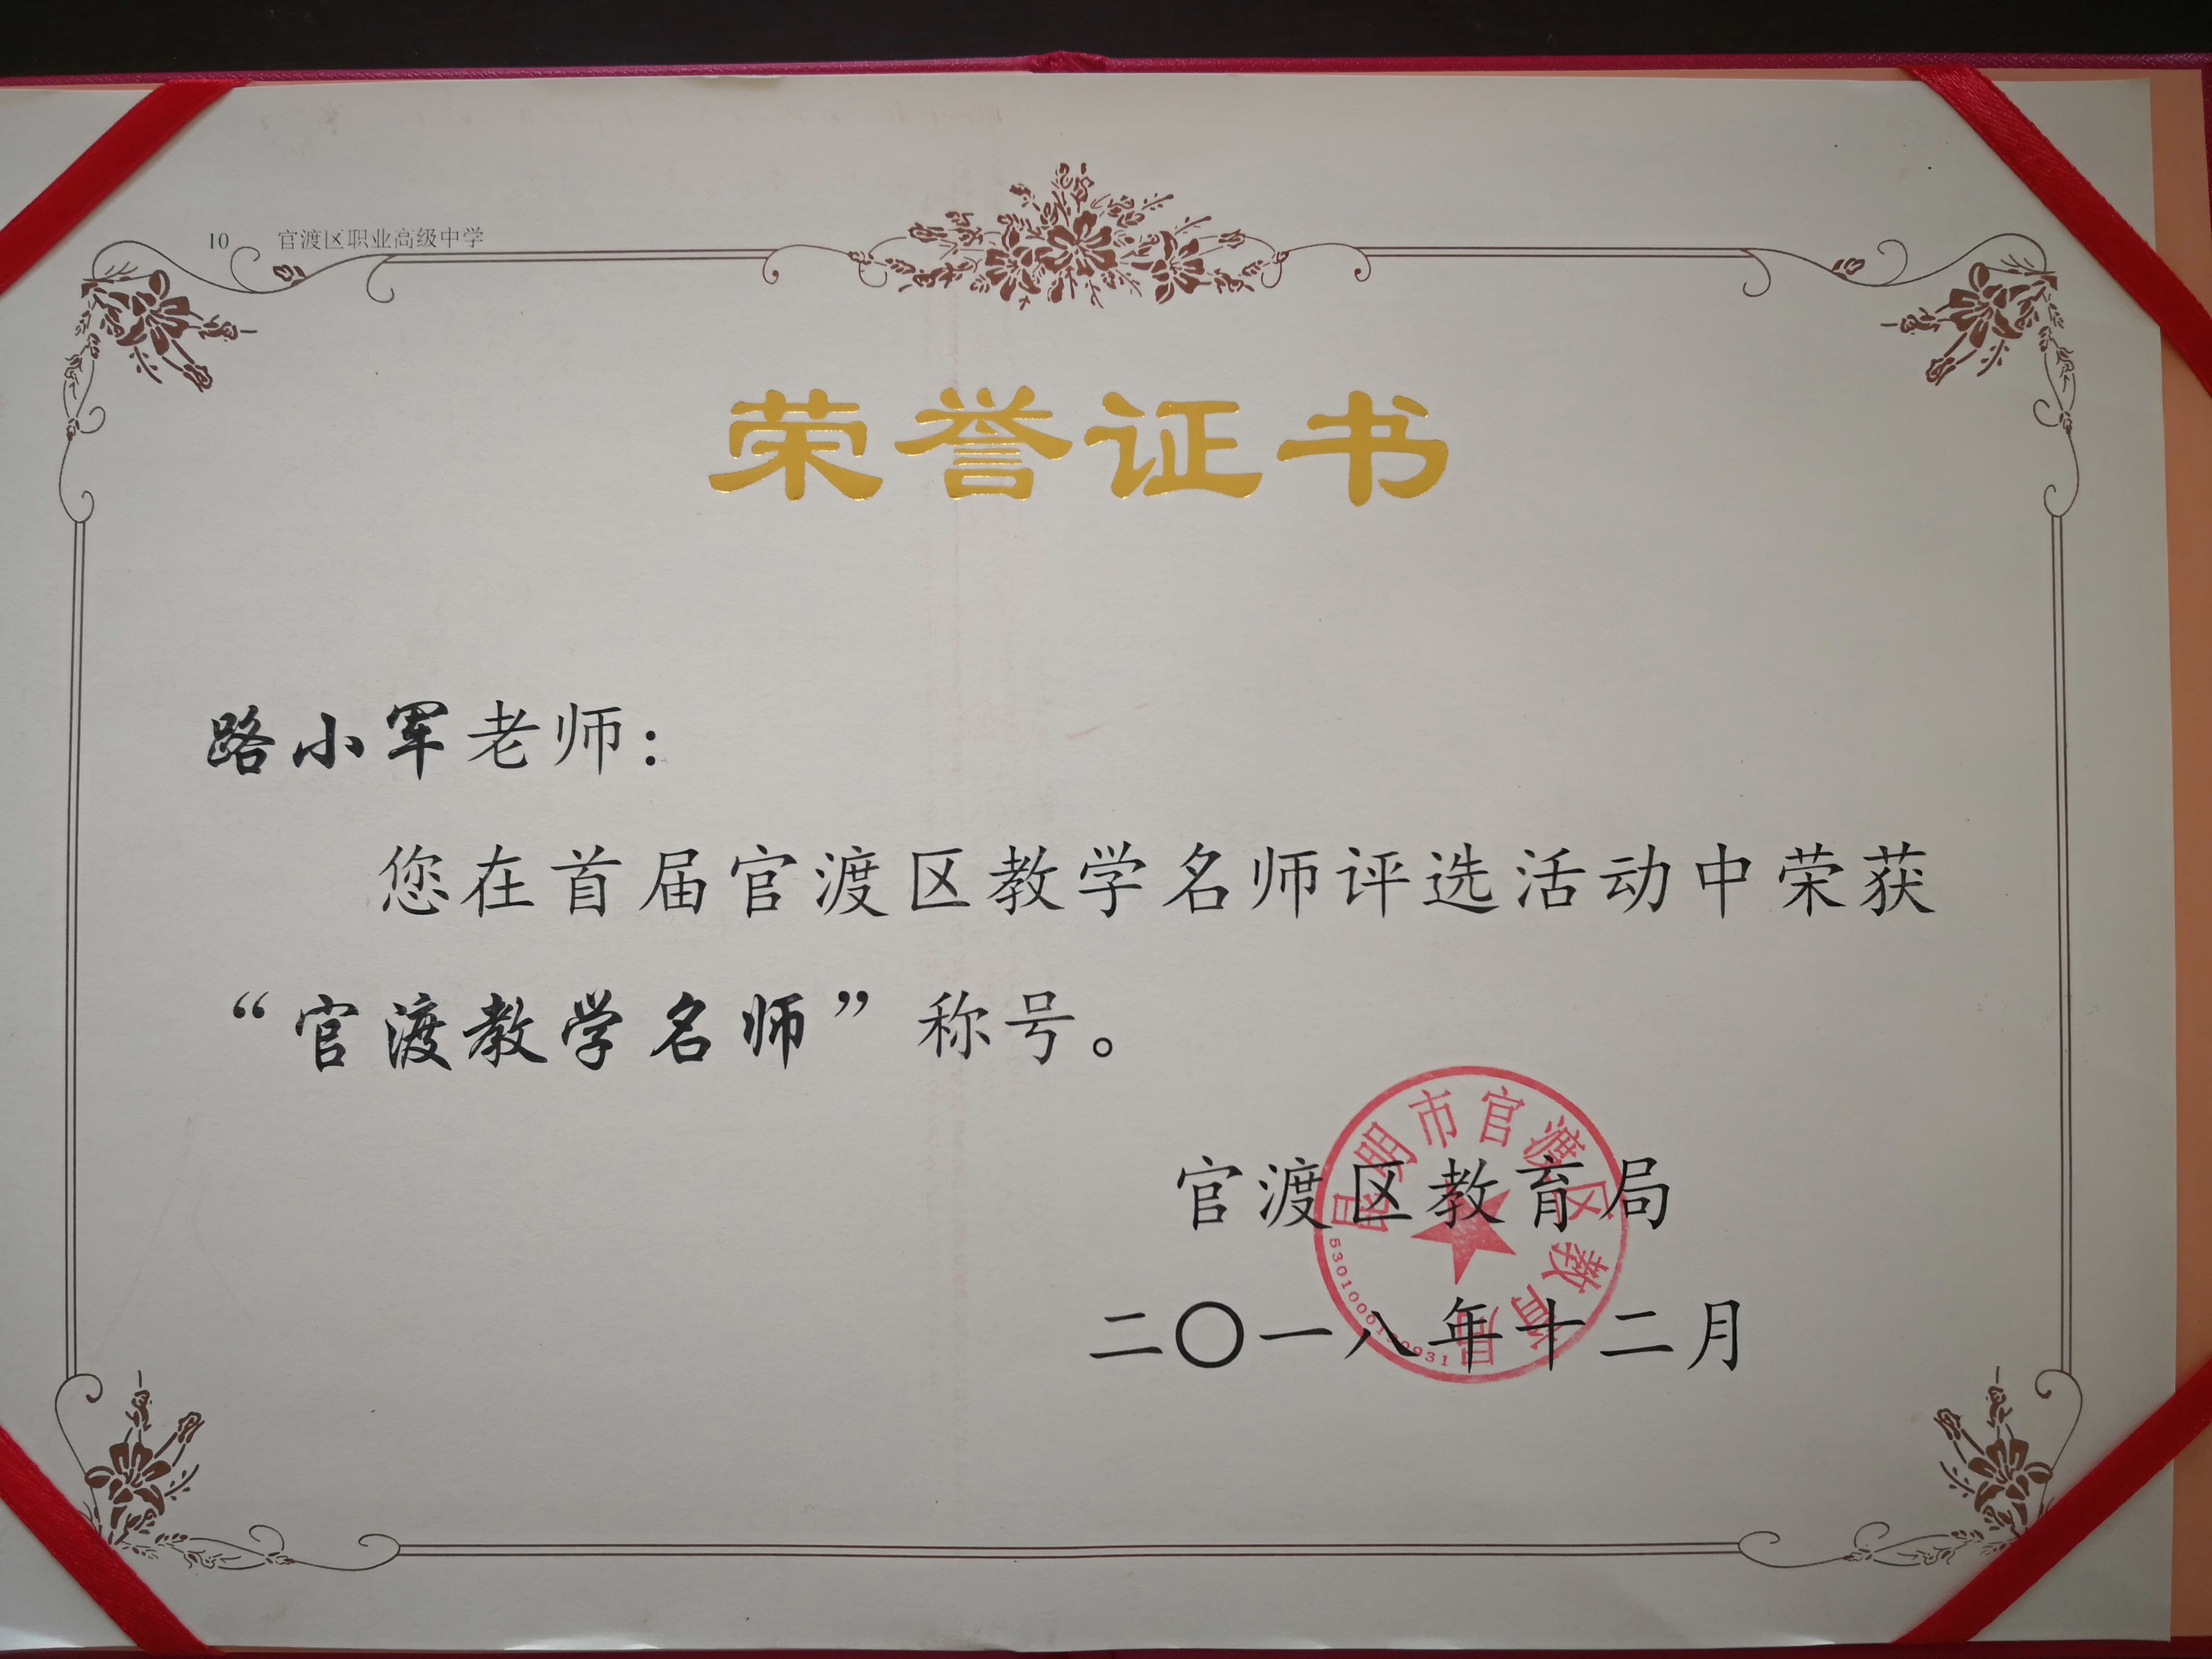 10 官渡区职业高级中学
荣誉证书
路小军老师：
您在首届官渡区教学名师评选活动中荣获
“官渡教学名师”称号。
昆明市官渡区教育局
官渡区教育局
二〇一八年十二月